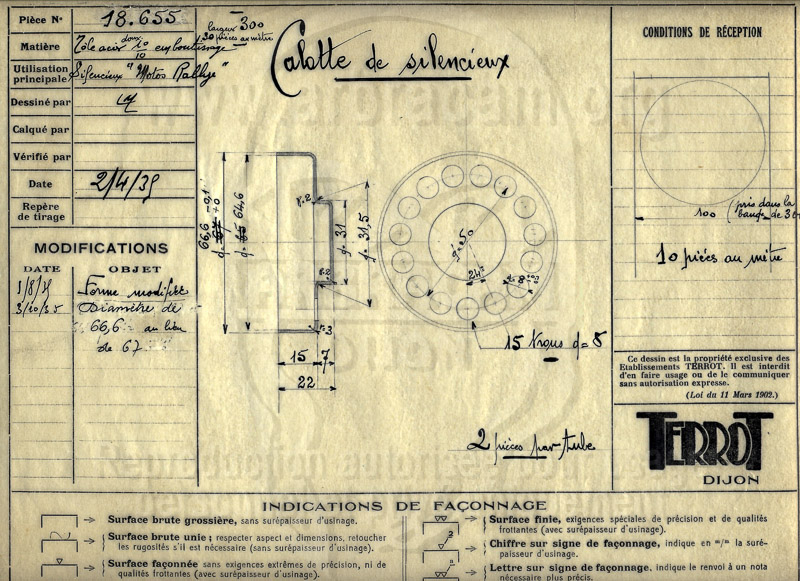 Pièce N° 18.655
largeur 300
30 pièces au mètre
Matière Tôle acier doux 10/10 emboutissage
Utilisation principale Silencieux "Motos Rallye"
Dessiné par
Calqué par
Vérifié par
Date 2/4/35
Repère de tirage
MODIFICATIONS
DATE OBJET
1/8/35 Forme modifiée
3/10/35 Diamètre de
66,6 au lieu
de 67
Calotte de silencieux
66,6 -0,1
d= 67 +0
d= 65 64,6
r.2
r.2
r=3
d=31
d=31,5
15
7
22
d=50
24°
d=8
15 trous d=8
2 pièces par tube
CONDITIONS DE RÉCEPTION
100
(pris dans la
bande de
10 pièces au mètre
Ce dessin est la propriété exclusive des
Etablissements TERROT. Il est interdit
d'en faire usage ou de le communiquer
sans autorisation expresse.
(Loi du 11 Mars 1902.)
TERROT
DIJON
INDICATIONS DE FAÇONNAGE
Surface brute grossière, sans surépaisseur d'usinage.
Surface brute unie ; respecter aspect et dimensions, retoucher
les rugosités s'il est nécessaire (sans surépaisseur d'usinage).
Surface façonnée sans exigences extrêmes de précision, ni de
qualités frottantes (avec surépaisseur d'usinage).
Surface finie, exigences spéciales de précision et de qualités
frottantes (avec surépaisseur d'usinage).
Chiffre sur signe de façonnage, indique en m/m la suré-
paisseur d'usinage.
Lettre sur signe de façonnage, indique le renvoi à un nota
nécessaire plus précis.